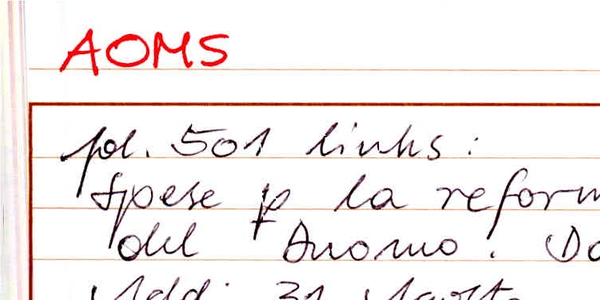 AOMS
fol. 501 links:
Spese p la reform
del Duomo. Do
Addi 31 Agosto